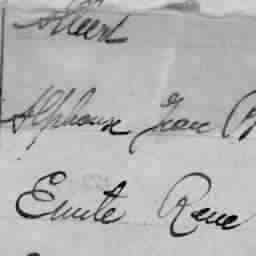 Albert
Alphonse Jean
Emile Rene